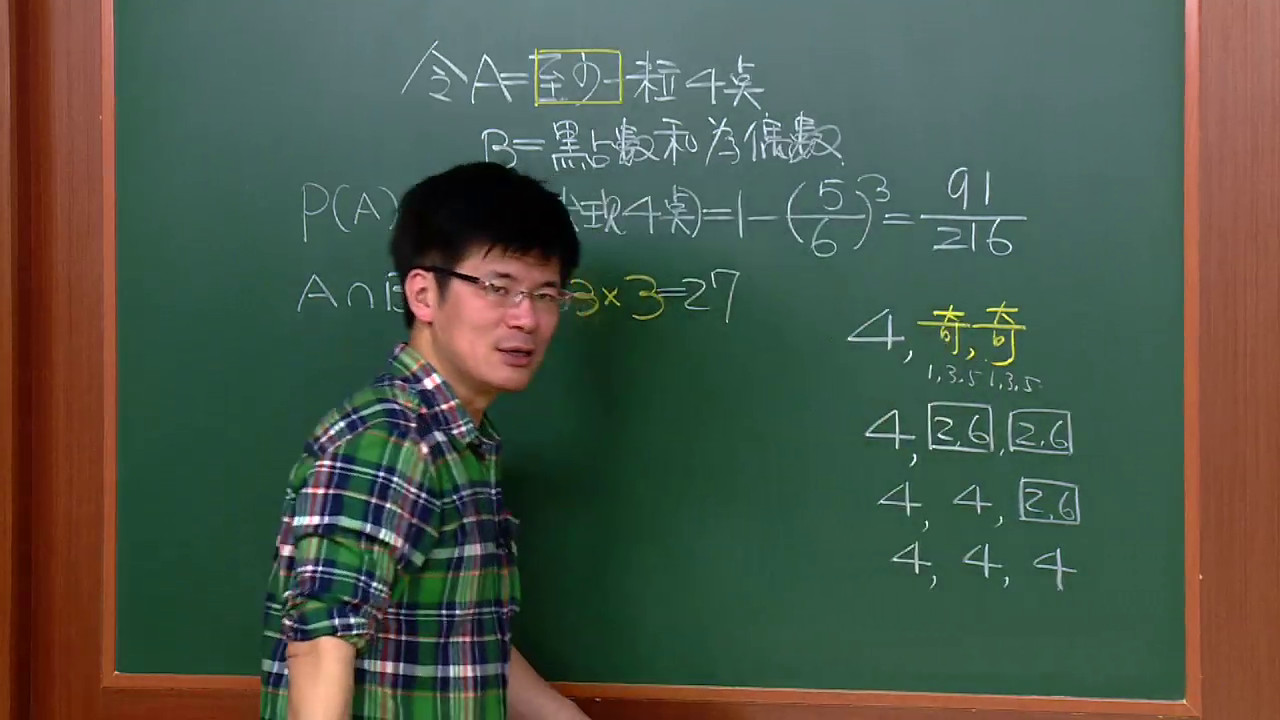 令A=至少一粒4点
B=點點數和為偶數
P(A) 出现4点)=1-(5/6)^3=91/216
A∩B 3×3=27
4,奇,奇
1,3,5 1,3,5
4,2,6,2,6
4,4,2,6
4,4,4